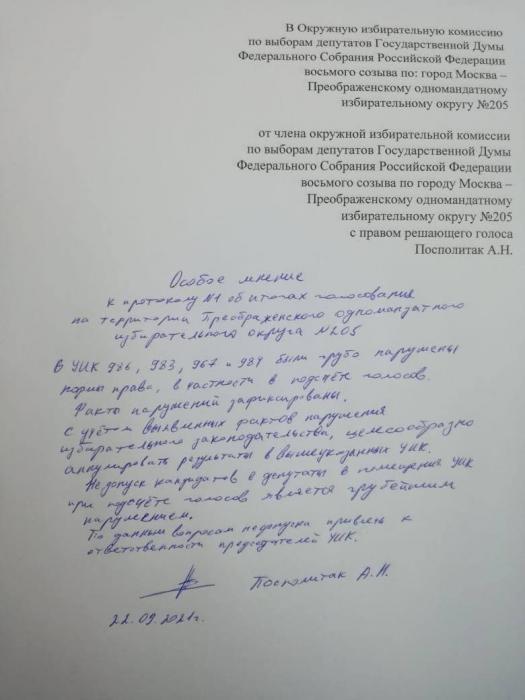 В Окружную избирательную комиссию
по выборам депутатов Государственной Думы
Федерального Собрания Российской Федерации
восьмого созыва по: город Москва –
Преображенскому одномандатному
избирательному округу №205
от члена окружной избирательной комиссии
по выборам депутатов Государственной Думы
Федерального Собрания Российской Федерации
восьмого созыва по городу Москва –
Преображенскому одномандатному
избирательному округу №205
с правом решающего голоса
Посполитак А.Н.
Особое мнение
к протоколу №1 об итогах голосования
на территории Преображенского одномандатного
избирательного округа №205
В УИК 986, 983, 967 и 984 были грубо нарушены
нормы права, в частности в подсчёте голосов.
Факты нарушений зафиксированы.
С учётом выявленных фактов нарушения
избирательного законодательства, целесообразно
аннулировать результаты в вышеуказанных УИК.
Недопуск кандидатов в депутаты в помещения УИК
при подсчёте голосов является грубейшим
нарушением.
По данным вопросам недопуска привлечь к
ответственности председателей УИК.
Посполитак А.Н.
22.09.2021г.